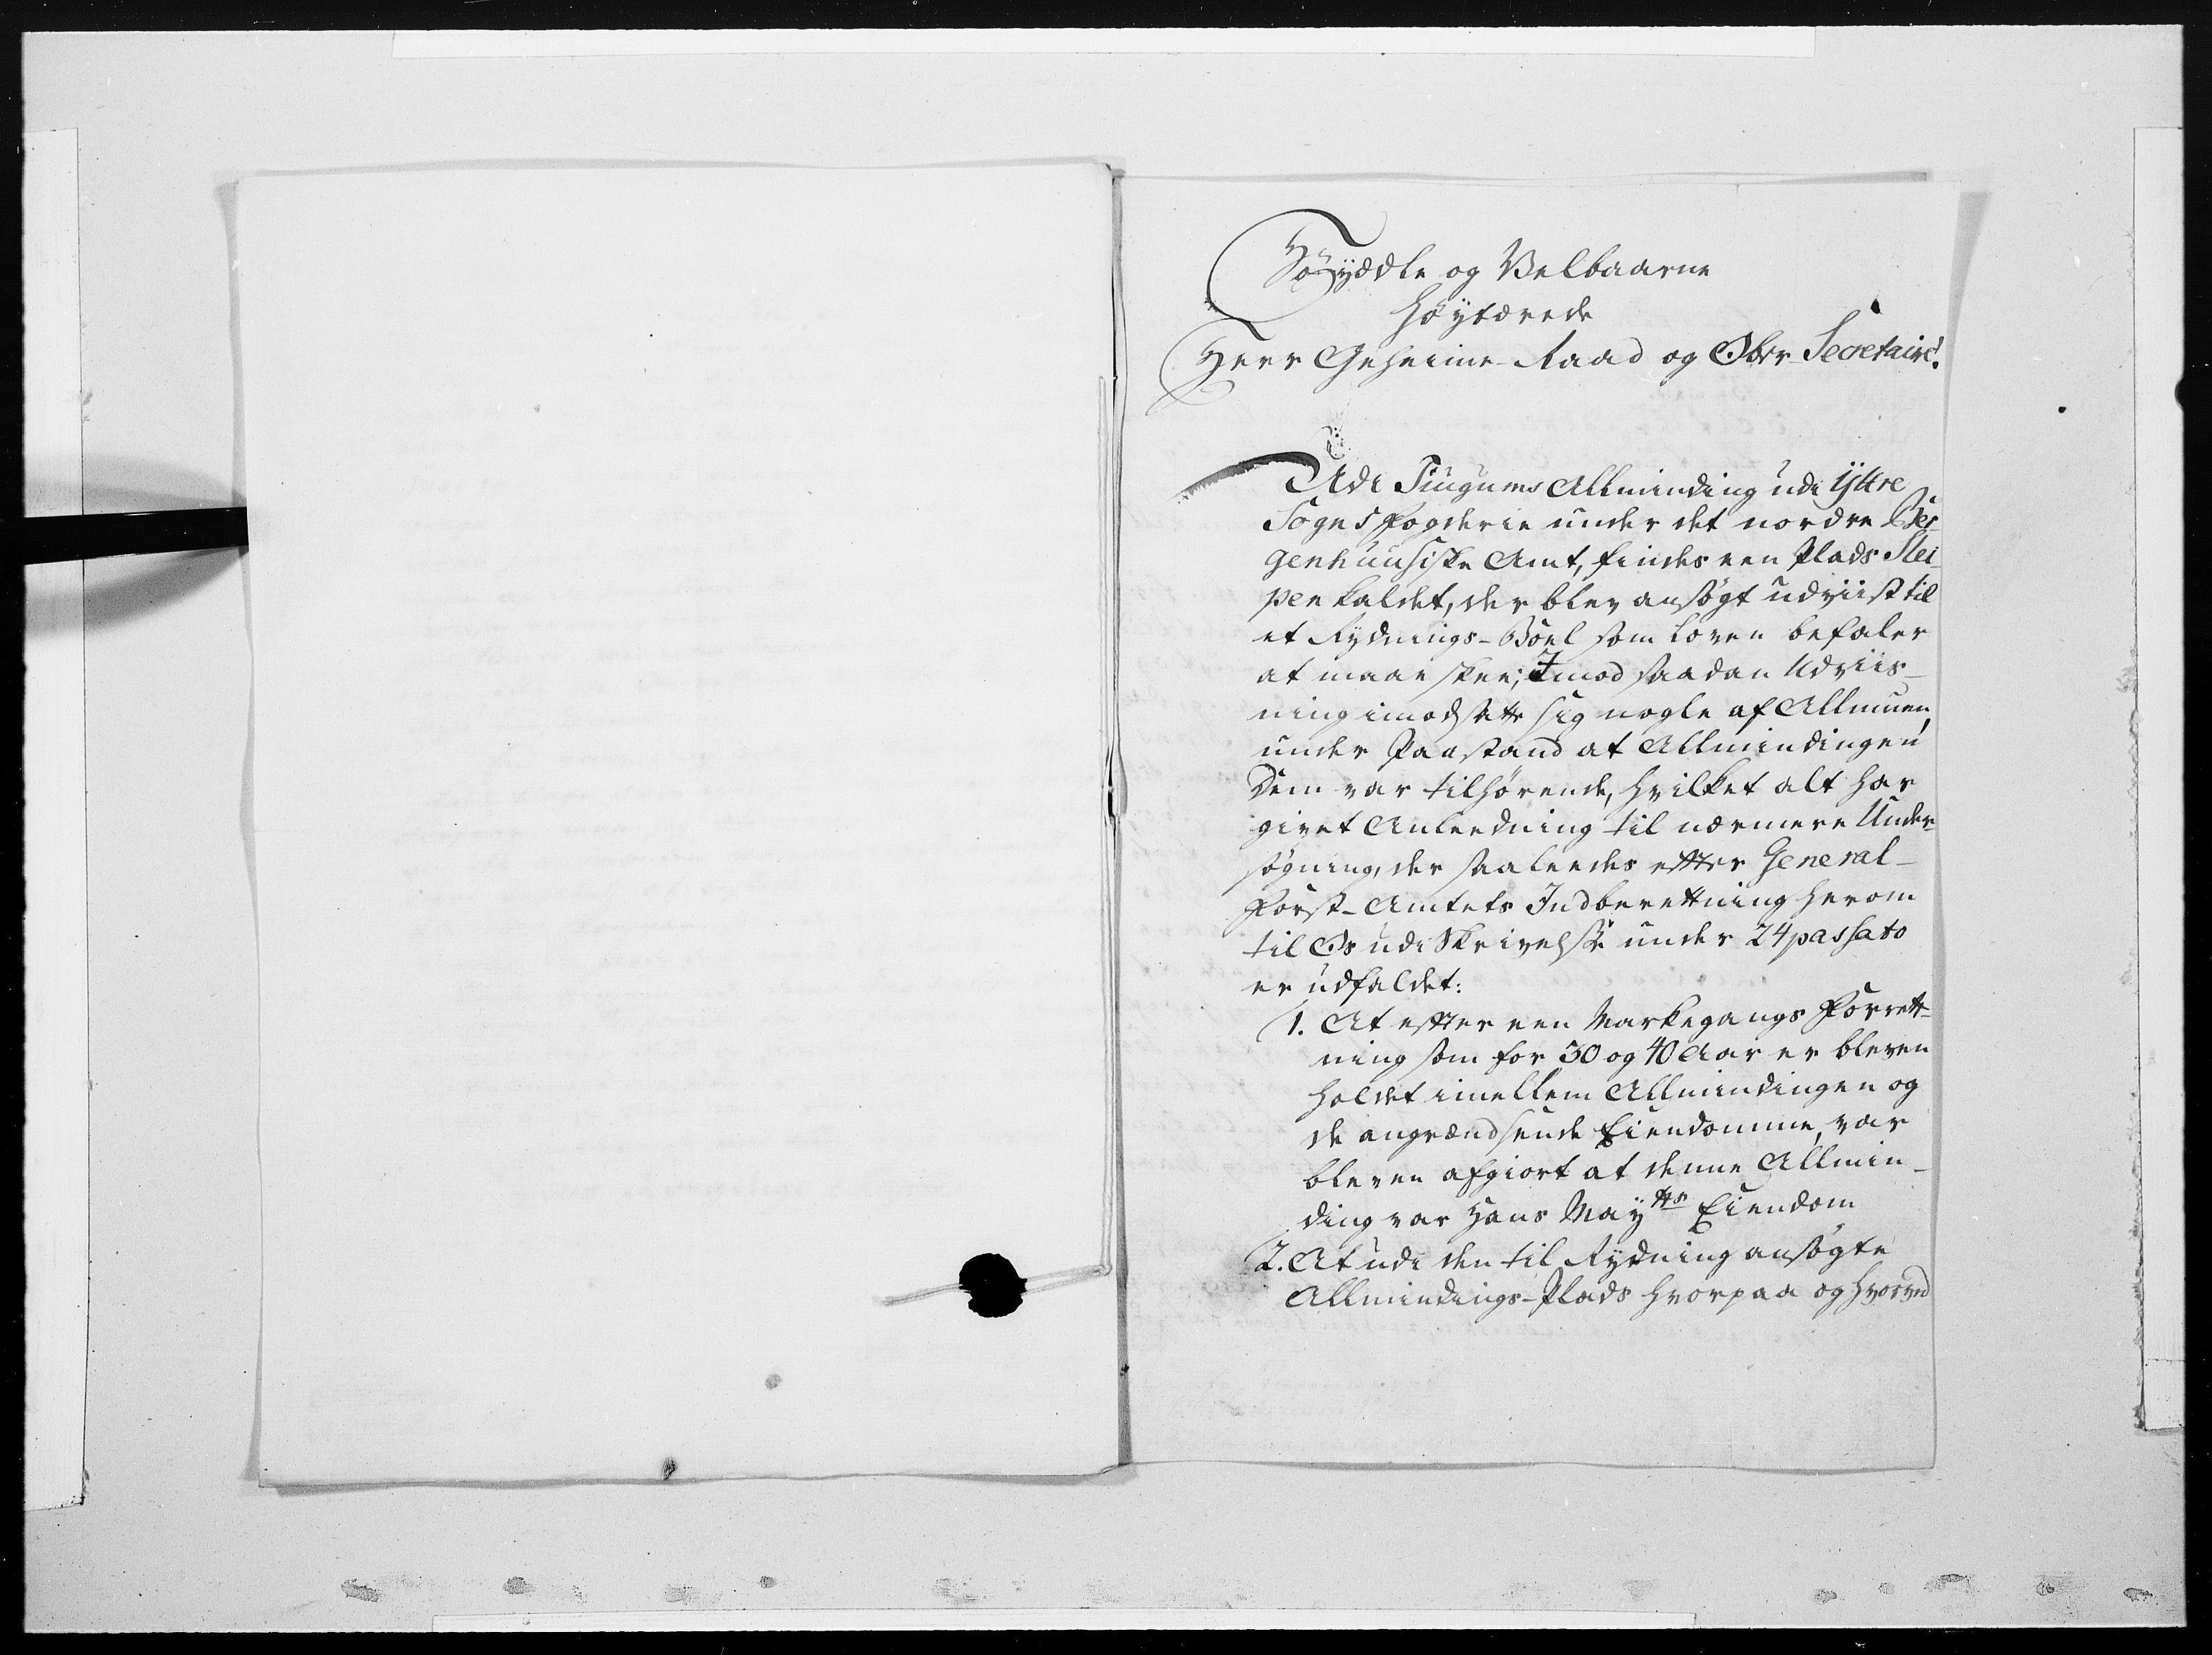 Høyædle og Velbaarne
Høytærede
Herr Geheime-Raad og Ober-Secretaire.
Udi Siugums Allminding udi Ÿttre
Sogns Fogderie under det nordre Ber-
genhuusiske Amt, findes een Plads Slei-
pen kaldet, der blev ansøgt udviist til
et Rydnings-Böel som Loven befaler
at maae skee; Imod saadan Udviis-
ning imodsatte sig nogle af Allmuen,
under Paastand at Allmindingen
Dem var tilhørende, hvilket alt har
givet Anleedning til nærmere Under-
søgning, der saaleedes efter General-
Forst-Amtets Indberettning herom
til Os udi Skrivelse under 24 passato
er udfaldet:
1. At efter een Markegangs Forrett-
ning som for 30 og 40 Aar er bleven
holdet imellem Allmindingen og
de angrændsende Eiendomme, var
bleven afgiort at denne Allmin-
ding var Hans Maytts Eiendom
2. At udi den til Rydning ansøgte
Allmindings-Plads hvorpaa og hvorved